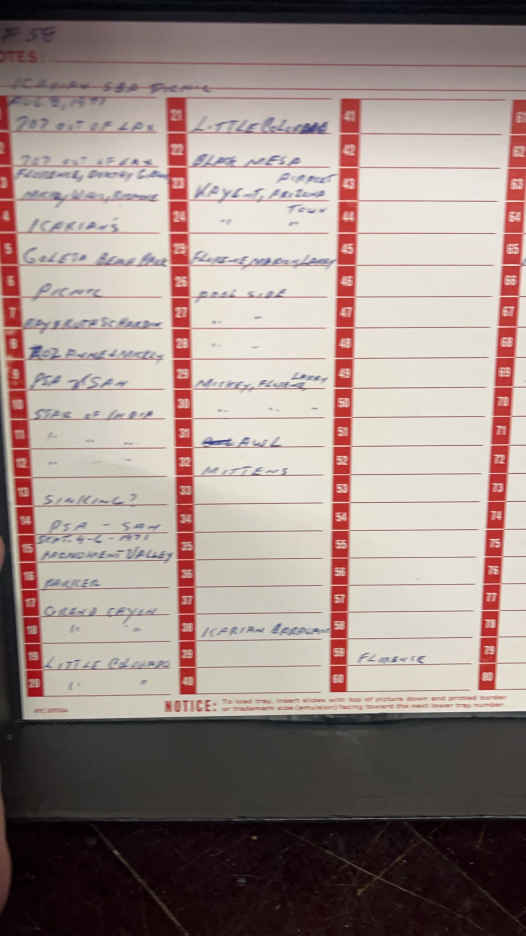 F 58
NOTES:
ICARIAN SBA PICNIC
AUG 8, 1971
1 707 OUT OF LAX
2 707 OUT OF LAX
3 FLORENCE, DOROTHY
4 ICARIAN'S
5 GOLETA BEACH PARK
6 PICNIC
7 RUTH SCHARDIN
8 ROZ ANNE & MICKEY
9 PSA SAN
10 STAR OF INDIA
11 " " "
12 " " "
13 SINKING?
14 PSA - SAN
SEPT. 4-6-1971
15 MONUMENT VALLEY
16 PARKER
17 GRAND CAYLN
18 " "
19 LITTLE COLORADO
20 " "
21 LITTLE COLORADO
22 BLACK MESA
AIRPORT
23 KAYENT, ARIZONA
TOWN
24 " "
25 FLORENE, MARION, LARRY
26 POOL SIDE
27 " "
28 " "
LARRY
29 MICKEY, FLORENE,
30 " " "
31 AWL
32 MITTENS
33
34
35
36
37
38 ICARIAN
39
40
41
42
43
44
45
46
47
48
49
50
51
52
53
54
55
56
57
58
59 FLORENCE
60
61
62
63
64
65
66
67
68
69
70
71
72
73
74
75
76
77
78
79
80
NOTICE: To load tray, insert slides with top of picture down and printed border
or trademark side (emulsion) facing toward the next lower tray number